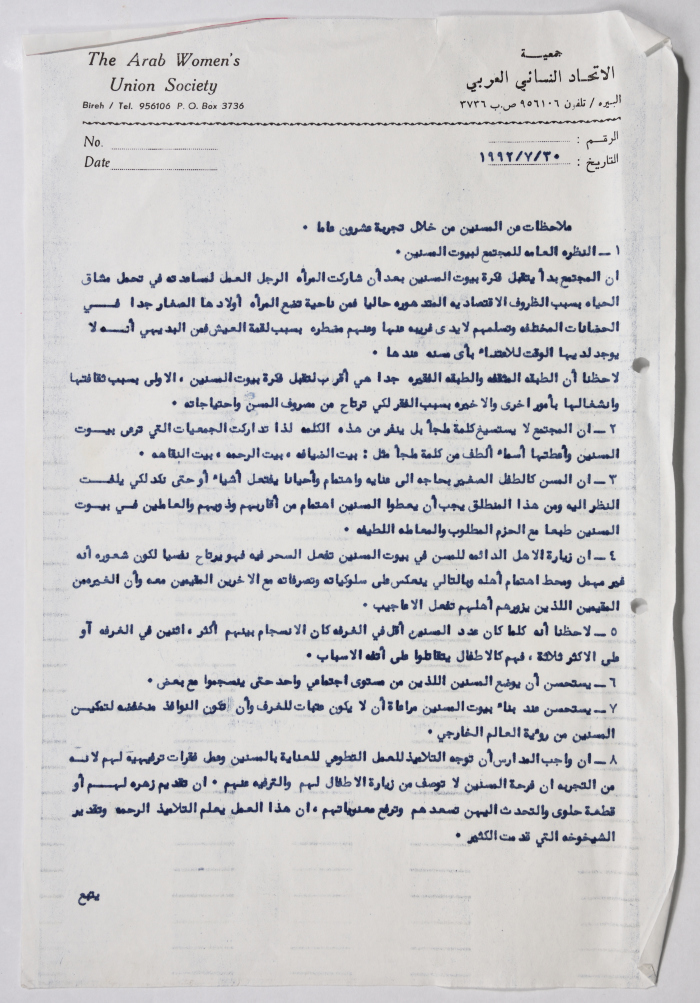 The Arab Women's
Union Society
Bireh / Tel. 956106 P. O. Box 3736
جمعيـــة
الاتحـاد النسائي العربي
البيره / تلفون ٩٥٦١٠٦ ص.ب ٣٧٣٦
No.
Date
الرقـــم :
التاريخ : ١٩٩٢/٧/٣٠
ملاحظات عن المسنين من خلال تجربة عشرون عاما •
١ ــ النظره العامه للمجتمع لبيوت المسنين •
ان المجتمع بدأ يتقبل فكرة بيوت المسنين بعد أن شاركت المرأه الرجل العمل لمساعدته في تحمل مشاق
الحياه بسبب الظروف الاقتصاديه المتدهوره حاليا فمن ناحية تضع المرأه أولادها الصغار جدا فـــــي
الحضانات المختلفه وتسلمهم لايدي غريبه عنها وعنهم مضطره بسبب لقمة العيش فمن البديهي أنـــه لا
يوجد لديها الوقت للاعتناء بأى مسنه عندها •
لاحظنا أن الطبقه المثقفه والطبقه الفقيره جدا هي أقرب لتقبل فكرة بيوت المسنين ، الاولى بسبب ثقافتها
وانشغالها بأمور اخرى والاخيره بسبب الفقر لكي ترتاح من مصروف المسن واحتياجاته •
٢ ــ ان المجتمع لا يستسيغ كلمة ملجأ بل ينفر من هذه الكلمه لذا تداركت الجمعيات التي ترعى بيـــوت
المسنين وأعطتها أسماء ألطف من كلمة ملجأ مثل : بيت الضيافه ، بيت الرحمه ، بيت النقاهه •
٣ ــ ان المسن كالطفل الصغير بحاجه الى عنايه واهتمام وأحيانا يفتعل أشياء أو حتى نكد لكي يلفـــت
النظر اليه ومن هذا المنطلق يجب أن يعطوا المسنين اهتمام من أقاربهم وذويهم والعاملين فـي بيـــوت
المسنين طبعا مع الحزم المطلوب والمعامله اللطيفه •
٤ ــ ان زيارة الاهل الدائمه للمسن في بيوت المسنين تفعل السحر فيه فهو يرتاح نفسيا لكون شعوره أنه
غير مهمل ومحط اهتمام أهله وبالتالي ينعكس على سلوكياته وتصرفاته مع الاخرين المقيمين معه وأن الغيره من
المقيمين اللذين يزورهم أهلهم تفعل الاعاجيب •
٥ ــ لاحظنا أنه كلما كان عدد المسنين أقل في الغرفه كان الانسجام بينهم أكثر ، اثنين في الغرفه أو
على الاكثر ثلاثة ، فهم كالاطفال يتقاتلوا على أتفه الاسباب •
٦ ــ يستحسن أن يوضع المسنين اللذين من مستوى اجتماعي واحد حتى ينسجموا مع بعض •
٧ ــ يستحسن عند بناء بيوت المسنين مراعاة أن لا يكون عتبات للغرف وأن تكون النوافذ منخفضه لتمكيـــن
المسنين من روئية العالم الخارجي •
٨ ــ ان واجب المدارس أن توجه التلاميذ للعمل التطوعي للعناية بالمسنين وعمل فقرات ترفيهيه لهم لانـــه
من التجربه ان فرحة المسنين لا توصف من زيارة الاطفال لهم والترفيه عنهم • ان تقديم زهره لهــــم أو
قطعة حلوى والتحدث اليهن تسعدهم وترفع معنوياتهم ، ان هذا العمل يعلم التلاميذ الرحمه وتقديـر
الشيخوخه التي قدمت الكثير •
يتبع